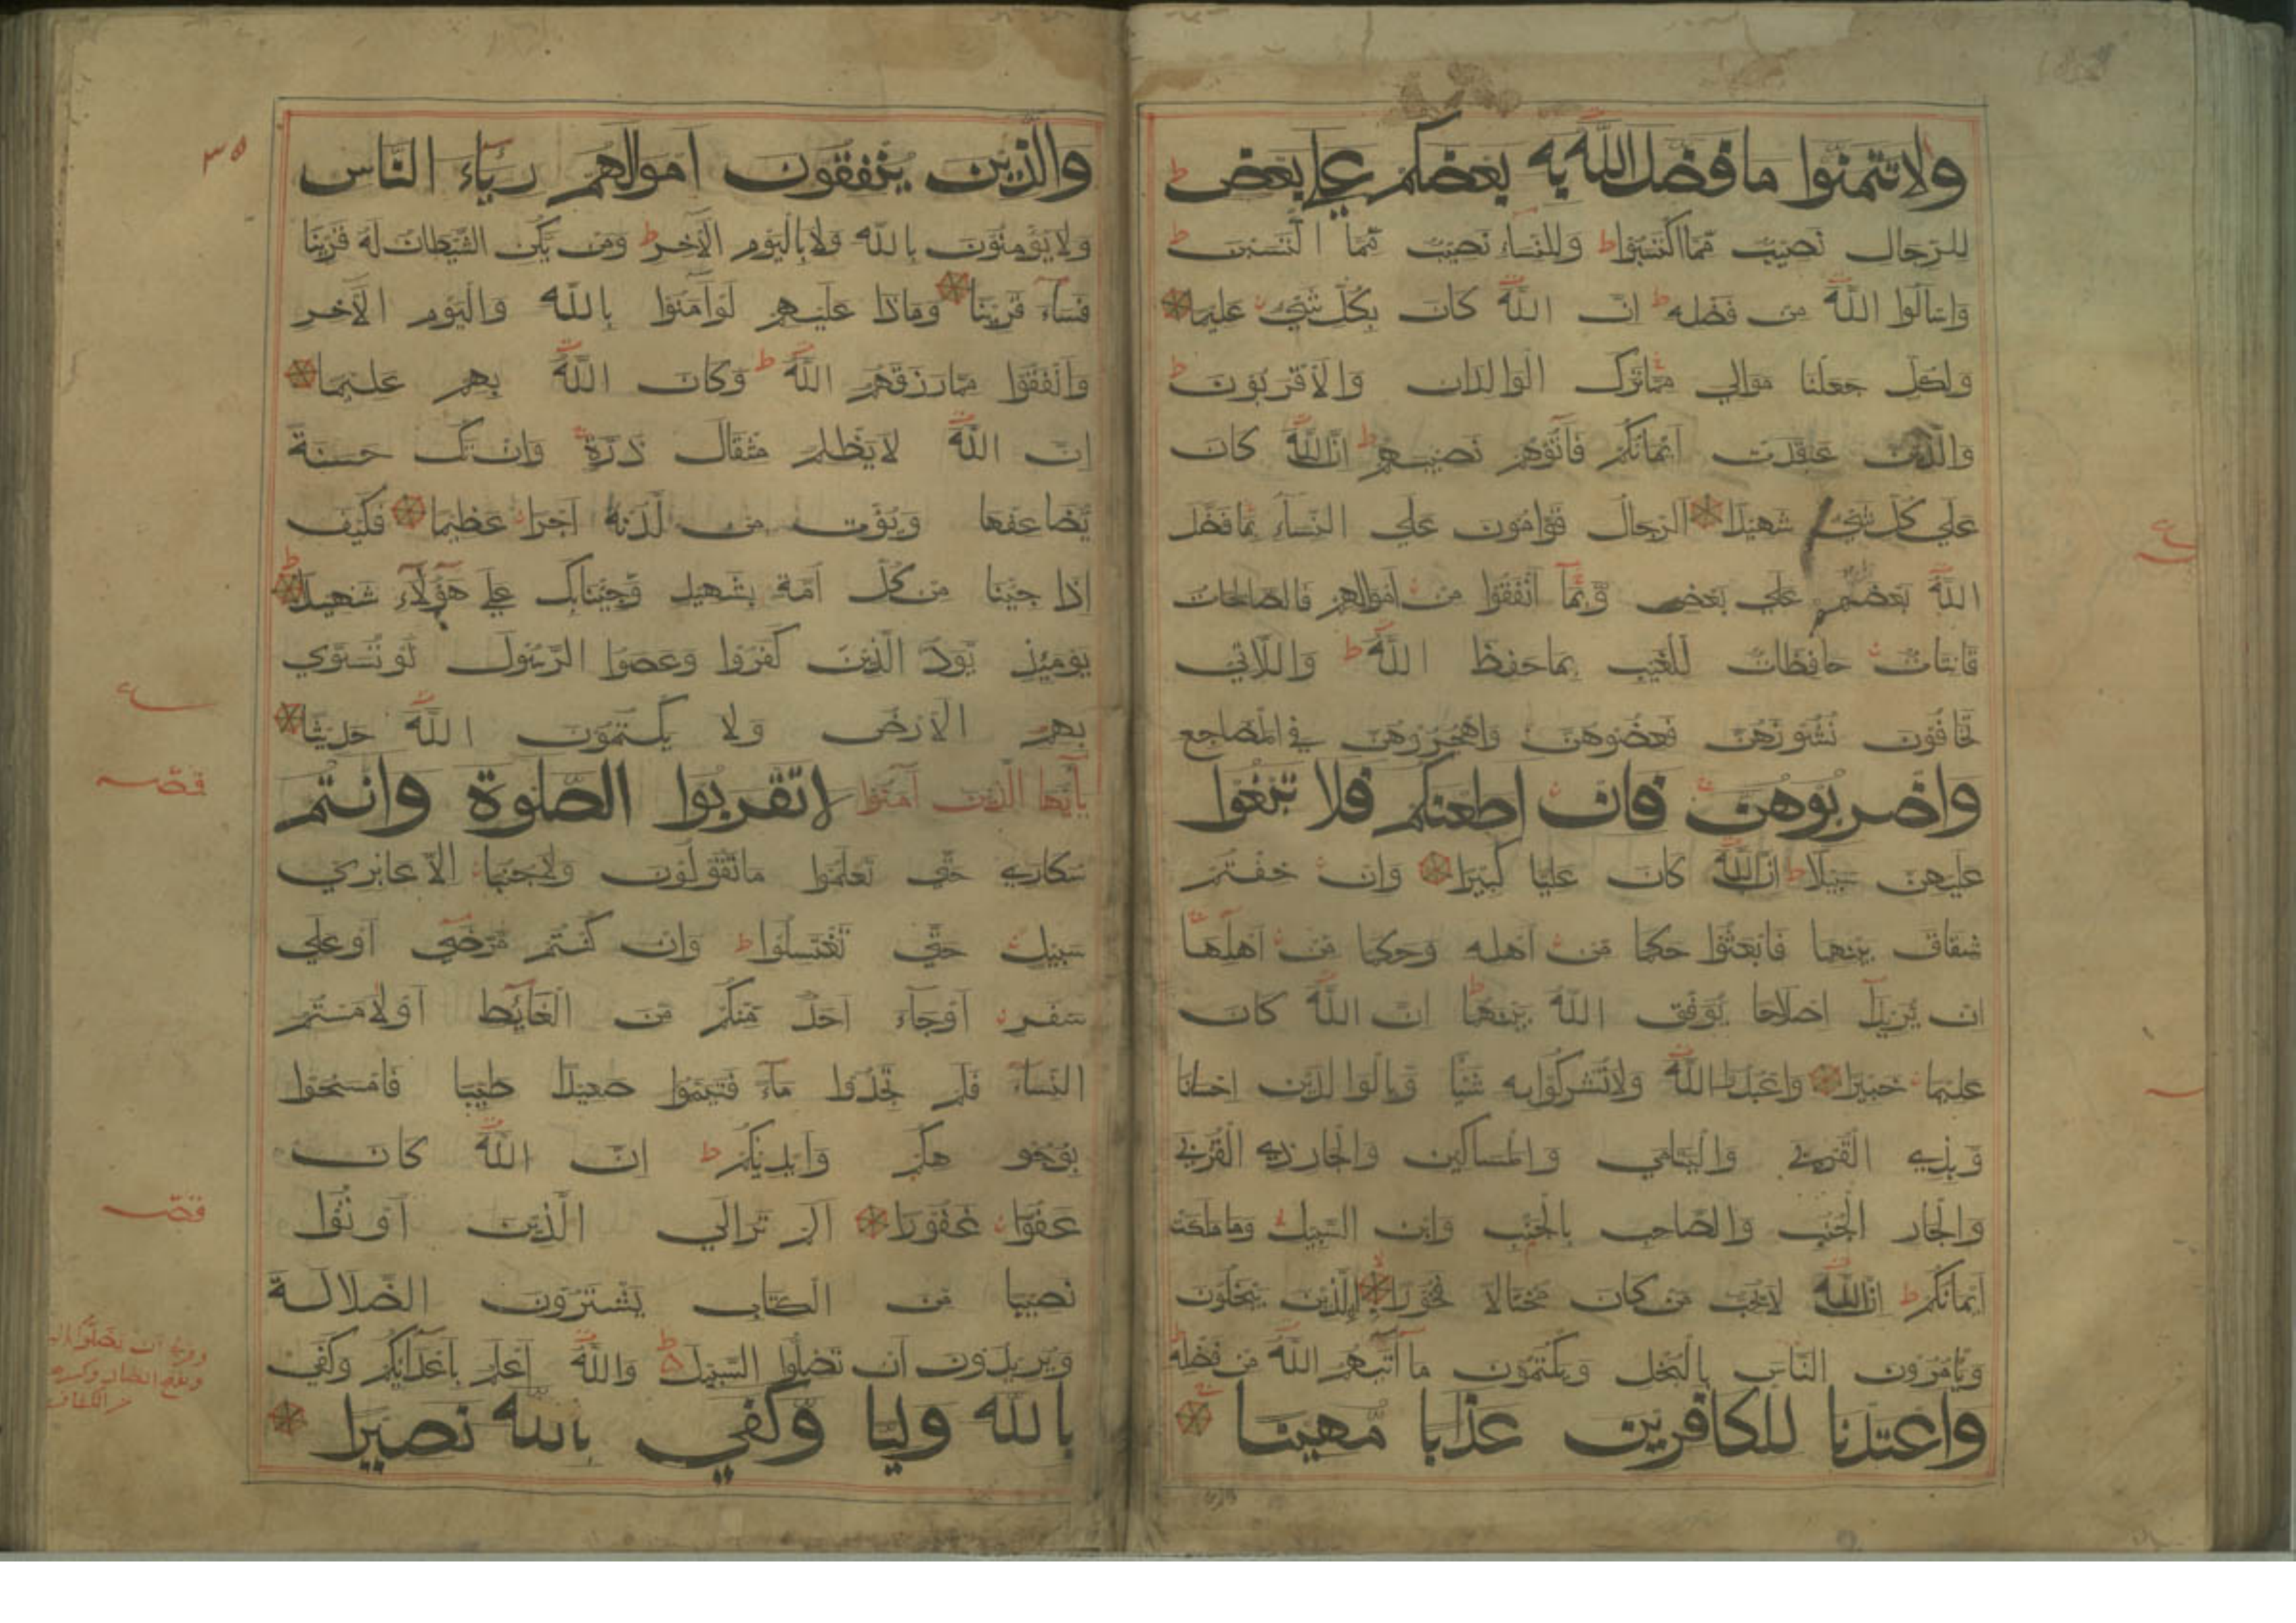 ولا تتمنوا ما فضل الله به بعضكم علي بعض ط
للرجال نصيب مما اكتسبوا ط وللنساء نصيب مما اكتسبن ط
واسألوا الله من فضله ط ان الله كان بكل شيء عليما
ولكل جعلنا موالي مما ترك الوالدان والاقربون ط
والذين عقدت ايمانكم فآتوهم نصيبهم ط ان الله كان
علي كل شيء شهيدا الرجال قوامون علي النساء بما فضل
الله بعضهم علي بعض وبما انفقوا من اموالهم فالصالحات
قانتات حافظات للغيب بما حفظ الله ط واللاتي
تخافون نشوزهن فعضوهن واهجروهن في المضاجع
واضربوهن فان اطعنكم فلا تبغوا
عليهن سبيلا ط ان الله كان عليا كبيرا وان خفتم
شقاق بينهما فابعثوا حكما من اهله وحكما من اهلها
ان يريدا اصلاحا يوفق الله بينهما ط ان الله كان
عليما خبيرا واعبدوا الله ولا تشركوا به شيئا وبالوالدين احسانا
وبذي القربي واليتامي والمساكين والجار ذي القربي
والجار الجنب والصاحب بالجنب وابن السبيل وما ملكت
ايمانكم ط ان الله لا يحب من كان مختالا فخورا الذين يبخلون
ويأمرون الناس بالبخل ويكتمون ما آتيهم الله من فضله ط
واعتدنا للكافرين عذابا مهينا
٣٥
والذين ينفقون اموالهم رئاء الناس
ولا يؤمنون بالله ولا باليوم الآخر ط ومن يكن الشيطان له قرينا
فساء قرينا وماذا عليهم لو آمنوا بالله واليوم الآخر
وانفقوا مما رزقهم الله ط وكان الله بهم عليما
ان الله لا يظلم مثقال ذرة وان تك حسنة
يضاعفها ويؤت من لدنه اجرا عظيما فكيف
إذا جئنا من كل امة بشهيد وجئنا بك علي هؤلاء شهيدا ط
يومئذ يود الذين كفروا وعصوا الرسول لو تسوي
بهم الارض ولا يكتمون الله حديثا
يا ايها الذين آمنوا لا تقربوا الصلوة وانتم
سكاري حتي تعلموا ما تقولون ولا جنبا الا عابري
سبيل حتي تغتسلوا ط وان كنتم مرضي او علي
سفر او جاء احد منكم من الغائط او لامستم
النساء فلم تجدوا ماء فتيمموا صعيدا طيبا فامسحوا
بوجوهكم وايديكم ط ان الله كان
عفوا غفورا الم تر الي الذين اوتوا
نصيبا من الكتاب يشترون الضلالة
ويريدون ان تضلوا السبيل ط والله اعلم باعدائكم وكفي
بالله وليا وكفي بالله نصيرا